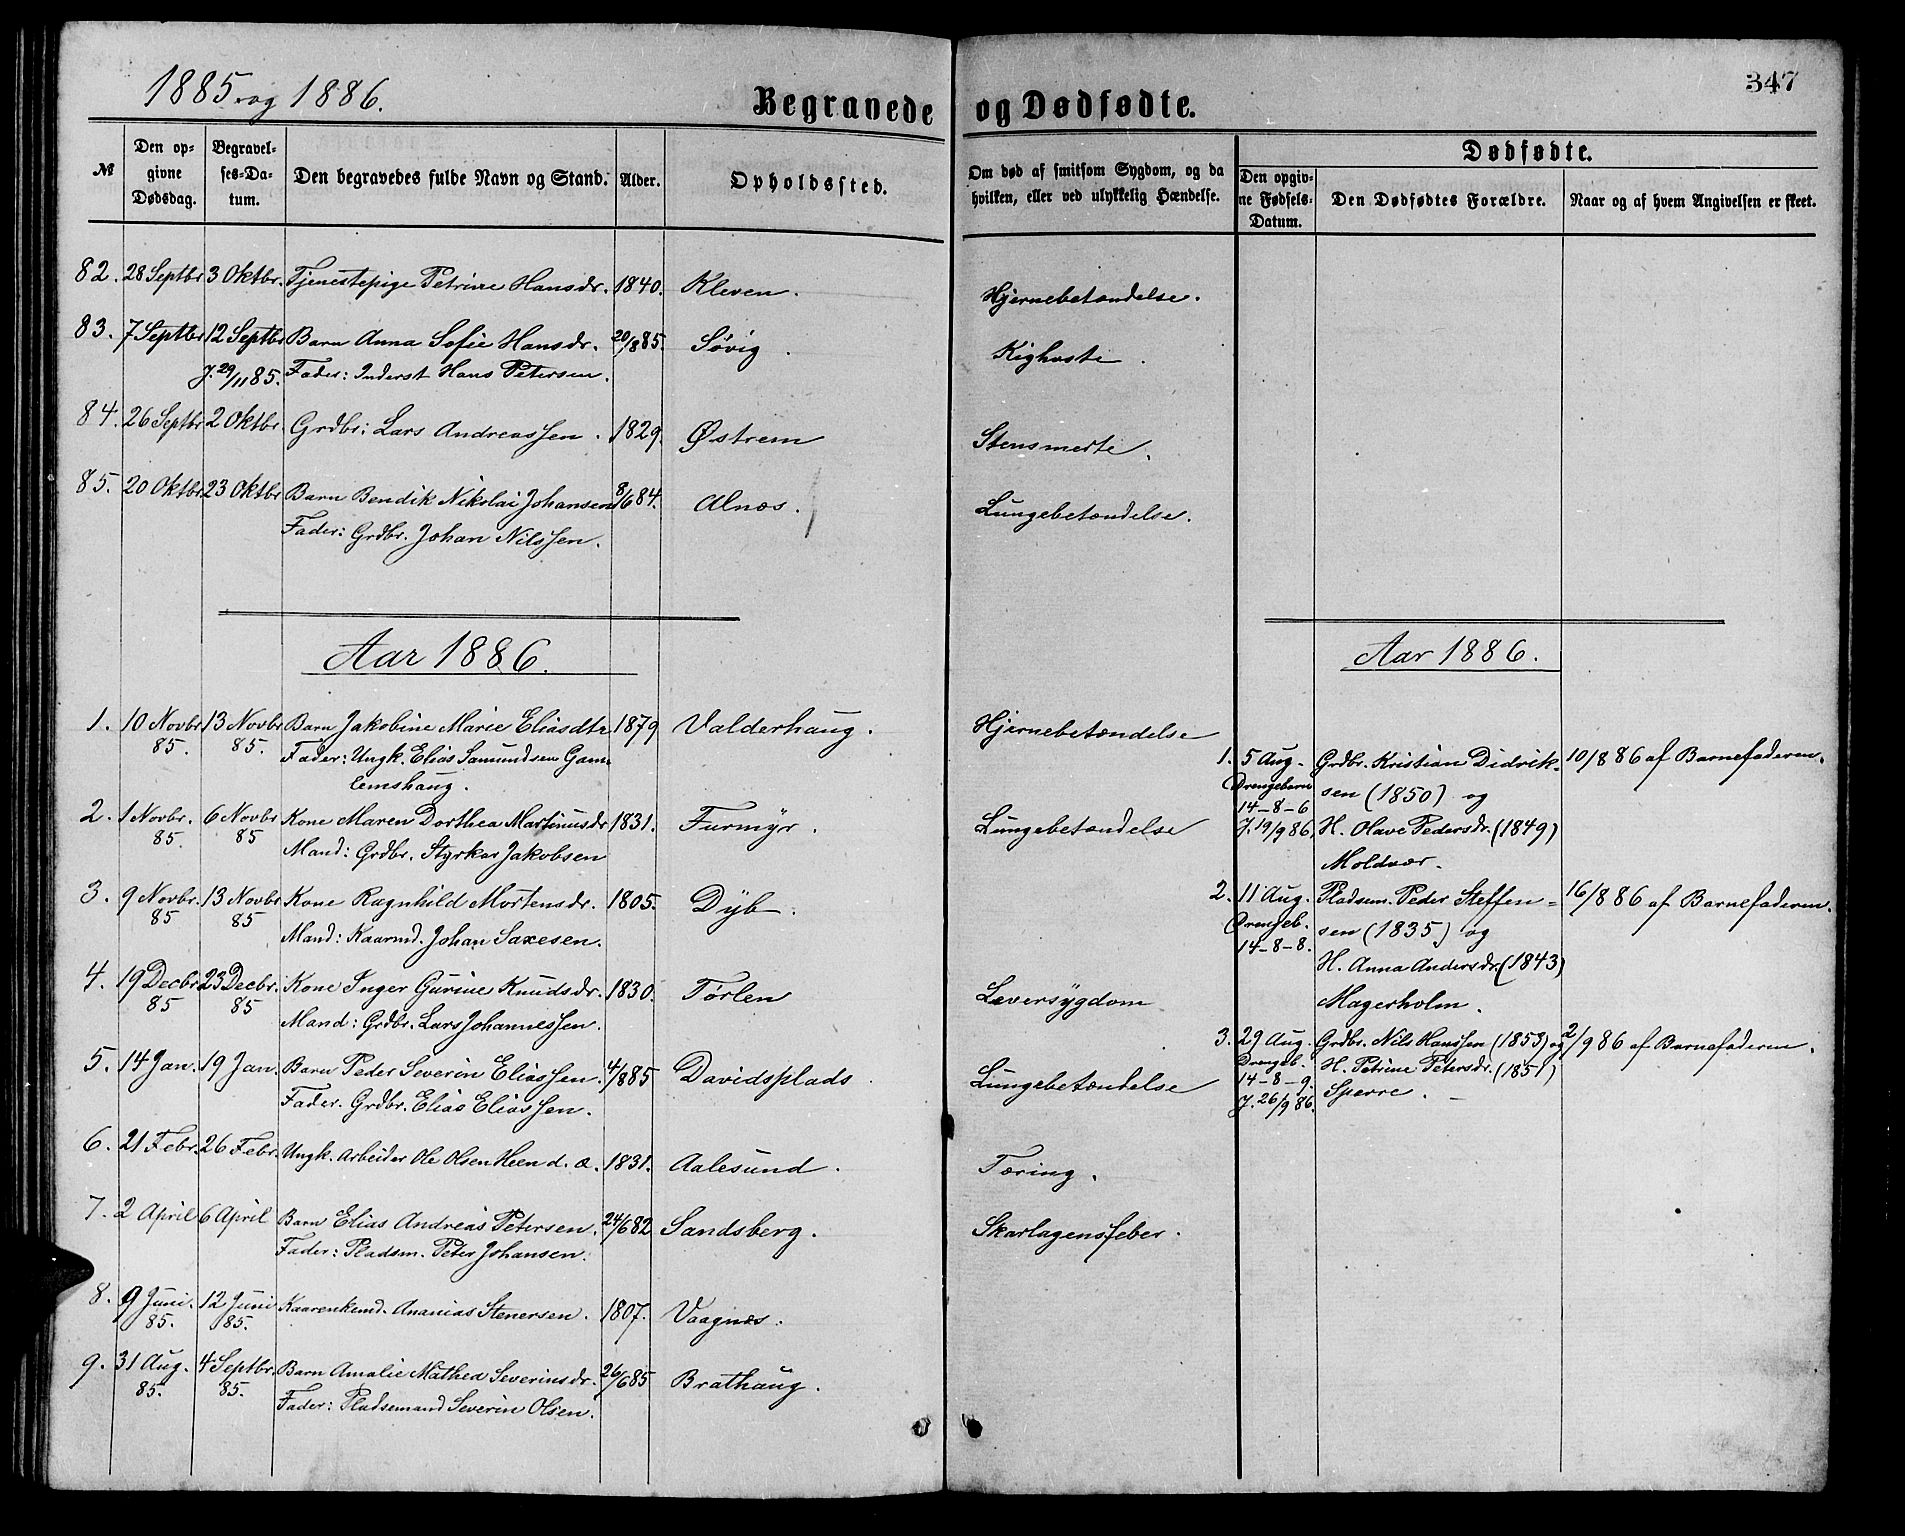 1885 og 1886.
347
Begravede og Dødfødte.
№
Den opgivne Dødsdag.
Begravelses-Datum.
Den begravedes fulde Navn og Stand.
Alder.
Opholdssted.
Om død af smitsom Sygdom, og da hvilken, eller ved ulykkelig Hændelse.
Dødfødte.
Den opgivne Fødsels-Datum.
Den Dødfødtes Forældre.
Naar og af hvem Angivelsen er skeet.
82. 28 Septbr 3 Oktbr. Tjenestepige Petrine Hansdr. 1840. Kleven. Hjernebetændelse.
83. 7 Septbr 12 Septbr Barn Anna Sofie Hansdr. 20/8 85. Søvig. Kighoste.
J. 29/11 85. Fader: Inderst Hans Petersen.
84. 26 Septbr 2 Oktbr. Grdbr: Lars Andreassen. 1829. Østrem Stensmerte.
85. 20 Oktbr 23 Oktbr Barn Bendik Nikolai Johansen 8/6 84. Alnæs. Lungebetændelse.
Fader: Grdbr. Johan Nilssen.
Aar 1886.
1. 10 Novbr 85. 13 Novbr 85. Barn Jakobine Marie Eliasdtr 1879 Valderhaug. Hjernebetændelse
Fader: Ungk. Elias Samundsen Gam-
lemshaug.
2. 1 Novbr. 85. 6 Novbr 85 Kone Maren Dorthea Martinusdr 1831. Furmyr. Lungebetændelse
Mand: Grdbr. Styrkar Jakobsen
3. 9 Novbr. 85 13 Novbr 85 Kone Ragnhild Mortensdr. 1805. Dyb.
Mand: Kaarmd. Johan Saxesen.
4. 19 Decbr 85 23 Decbr. 85 Kone Inger Gurine Knudsdr. 1830. Tørlen Leversygdom
Mand: Grdbr. Lars Johannessen.
5. 14 Jan. 19 Jan. Barn Peder Severin Eliassen. 4/8 85 Davidsplads. Lungebetændelse
Fader. Grdbr. Elias Eliassen.
6. 21 Febr. 26 Febr. Ungk. Arbeider Ole Olsen Heen d. æ. 1831. Aalesund. Tæring.
7. 2 April 6 April Barn Elias Andreas Petersen. 24/6 82 Sandsberg. Skarlagensfeber.
Fader: Pladsm. Peter Johansen.
8. 9 Juni. 85. 12 Juni 85. Kaarenkemd. Ananias Stenersen. 1807. Vaagnæs.
9. 31 Aug. 85. 4 Septbr. 85. Barn Amalie Mathea Severinsdr. 26/6 85 Brathaug.
Fader: Pladsemand Severin Olsen.
Aar 1886.
1. 5 Aug. Grdbr. Kristian Didrik- 10/8 86 af Barnefaderen.
Drengebarn sen (1850) og
14-8-6
J. 19/9 86. H. Olave Pedersdr. (1849)
Moldvær.
2. 11 Aug. Pladsem. Peder Steffen- 16/8 86 af Barnefaderen.
Drengeb. sen (1835) og
14-8-8. H. Anna Andersdr. (1843)
Magerholm.
3. 29 Aug. Grdbr. Nils Hanssen (1853) og 2/9 86 af Barnefaderen.
Drengeb. H. Petrine Petersdr. (1851)
14-8-9. Sperre.
J. 26/9 86.